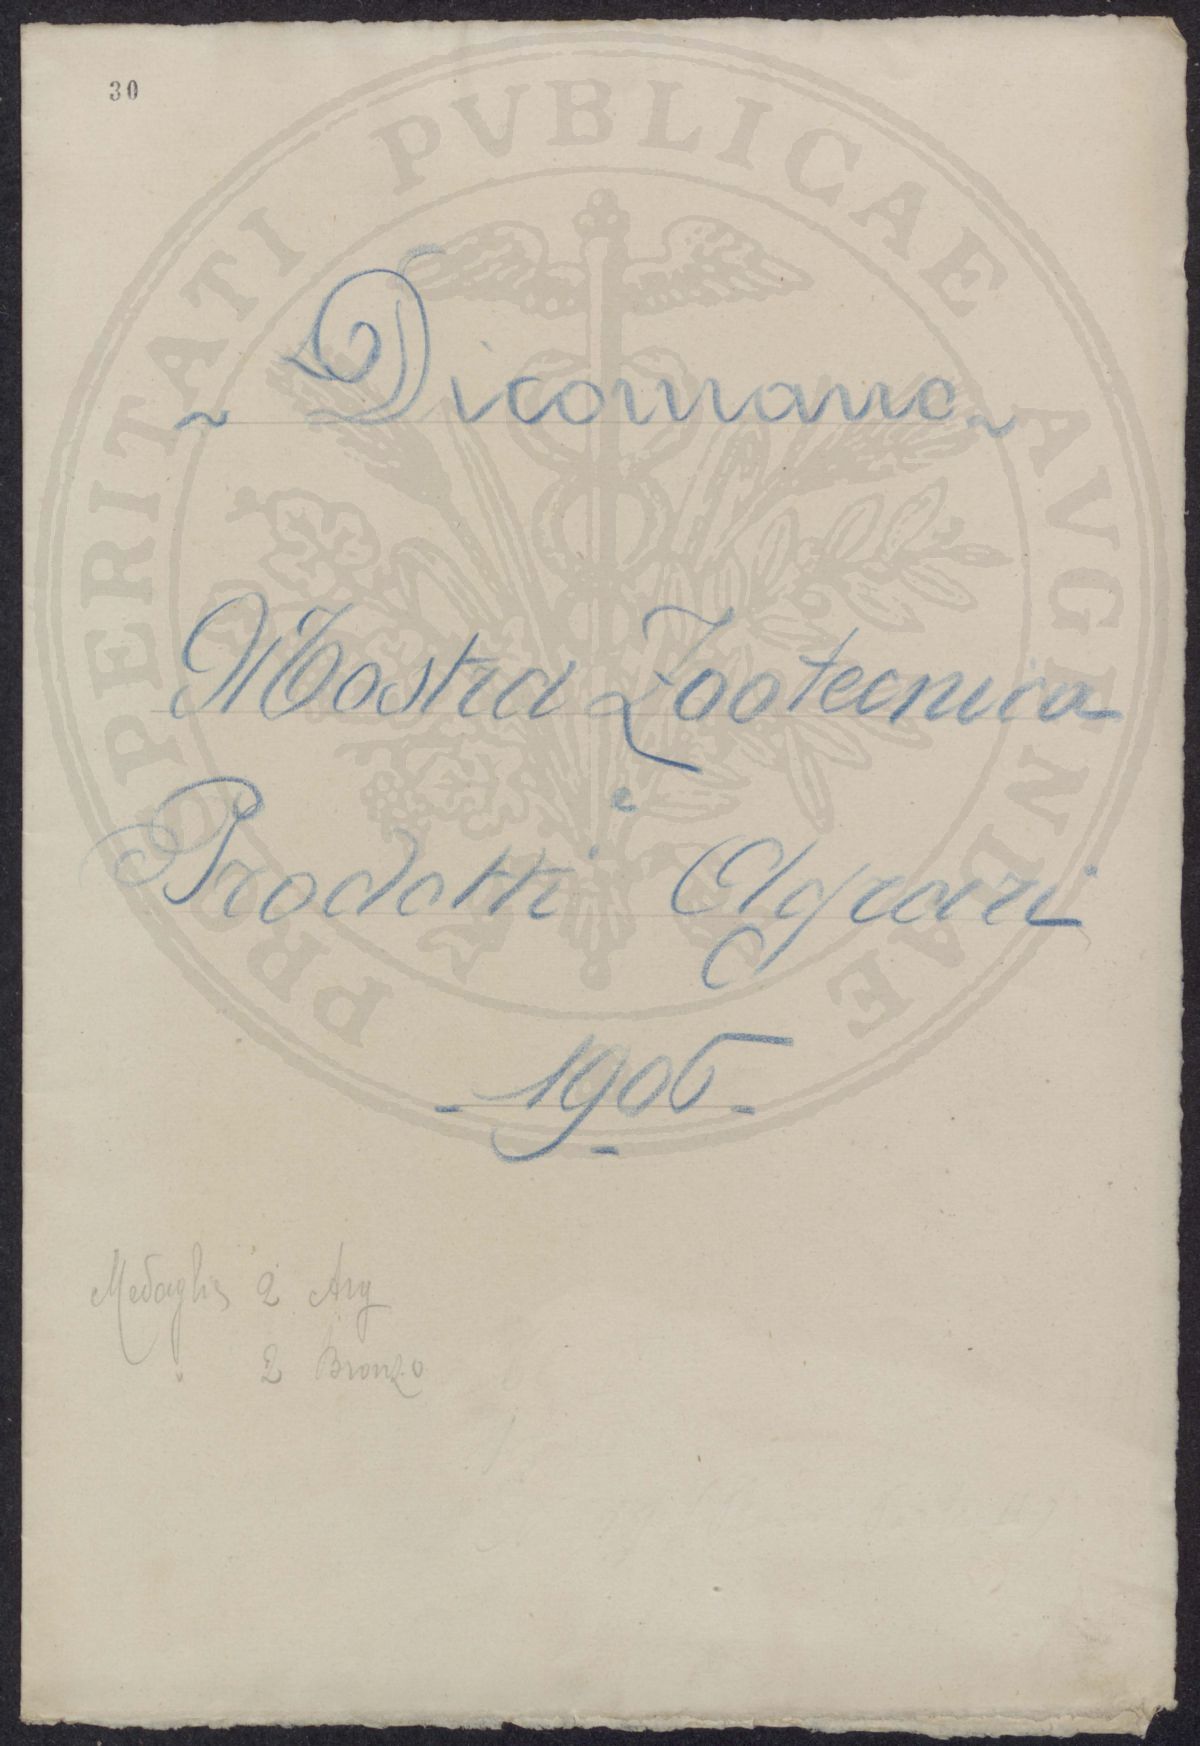 30
PROSPERITATI PVBLICAE AVGENDAE
~ Dicomano ~
Mostra Zootecnica
e
Prodotti Agrari
- 1906 -
Medaglie 2 Arg
" 2 Bronzo